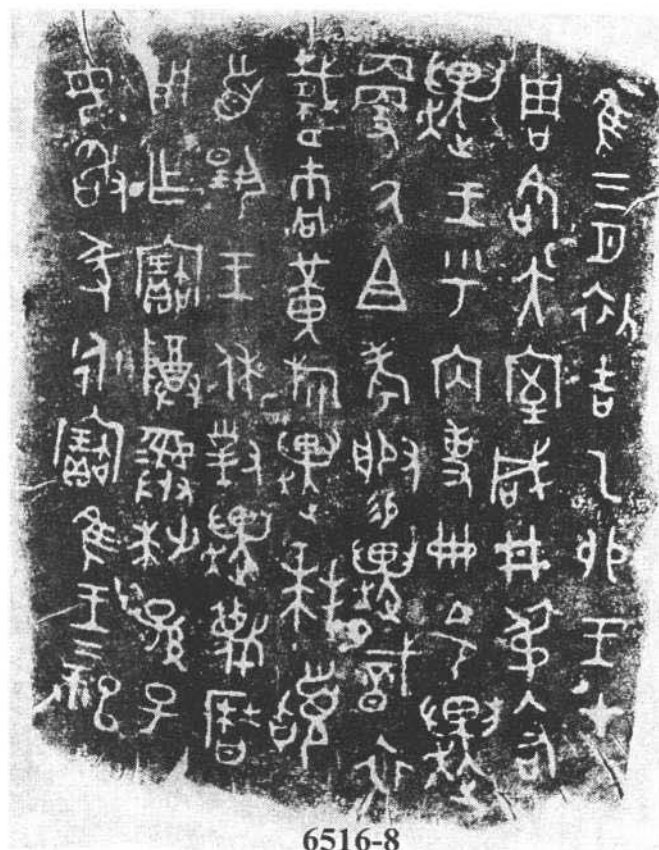 隹三月初吉乙卯王才
周各大室咸井弔入右
趩王乎內史冊令趩
更氒且考服易趩戠衣
載巿冋黃旂趩拜𩒨
首揚王休對趩蔑曆
用乍寶尊彝枼孫子
毋敢㒸永寶隹王二祀
6516-8